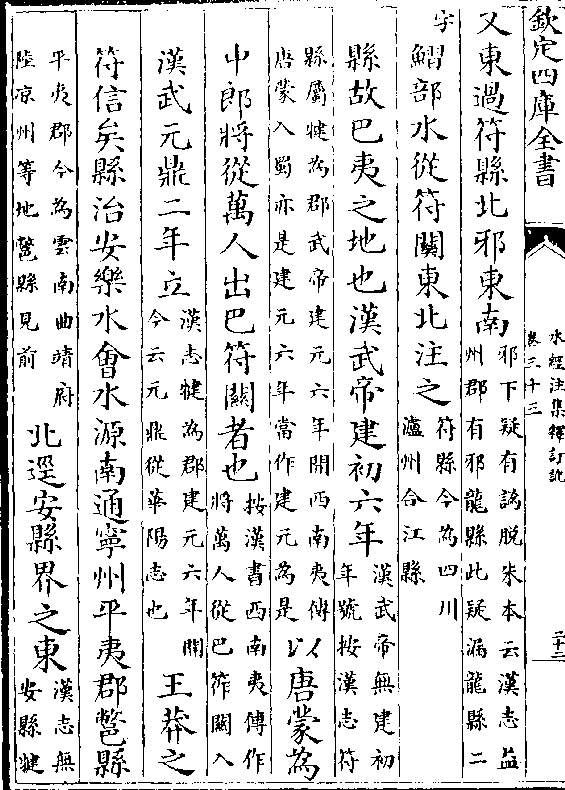 欽定四庫全書
水經注集釋訂訛
卷三十三
二十二
又東過符縣北邪東南邪下疑有譌脫朱本云漢志益州郡有邪龍縣此疑漏龍縣二
字鰼部水從符關東北注之符縣今為四川瀘州合江縣
縣故巴夷之地也漢武帝建初六年漢武帝無建初年號按漢志符
縣屬犍為郡武帝建元六年開西南夷傳唐蒙入蜀亦是建元六年當作建元為是以唐蒙為
中郎將從萬人出巴符關者也按漢書西南夷傳作將萬人從巴筰關入
漢武元鼎二年立漢志犍為郡建元六年開今云元鼎從華陽志也王莽之
符信矣縣治安樂水會水源南通寧州平夷郡鄨縣
平夷郡今為雲南曲靖府陸凉州等地鄨縣見前北逕安縣界之東漢志無安縣犍